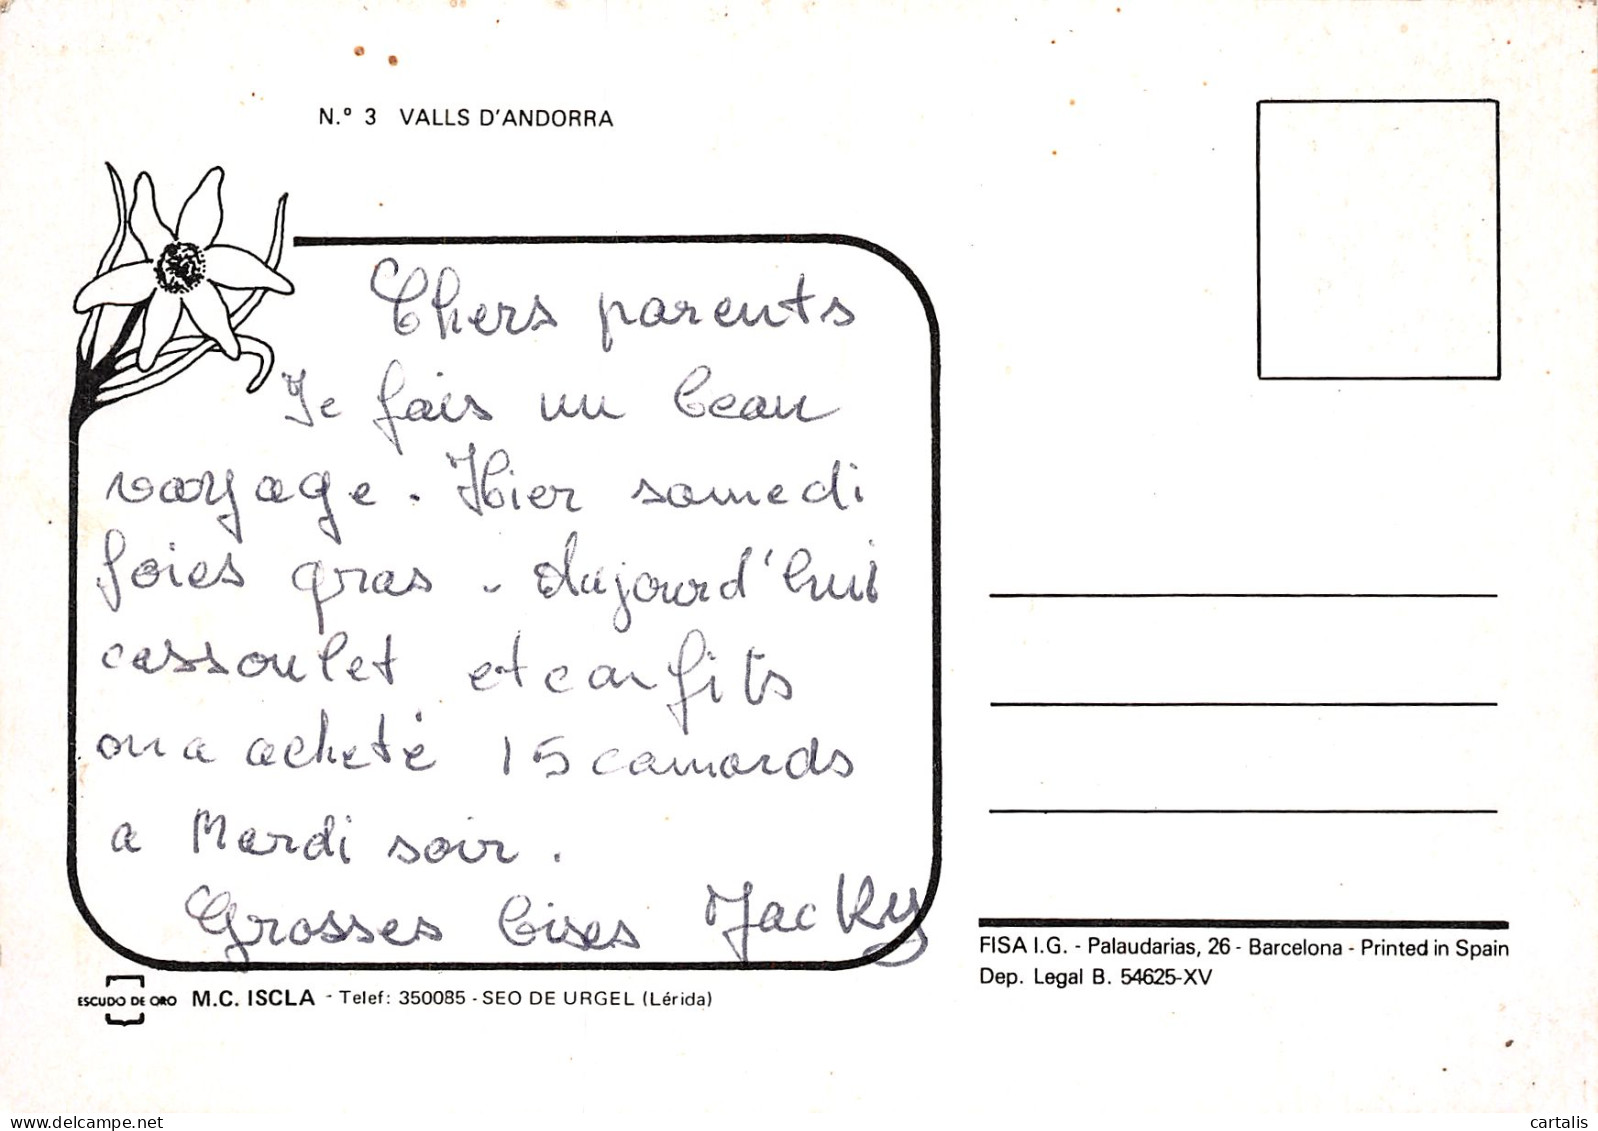 N.º 3 VALLS D'ANDORRA
Chers parents
Je fais un beau
voyage. Hier samedi
foies gras - Aujourd'hui
cassoulet et confits
on a acheté 15 camards
a Mardi soir.
Grosses bises Jacky
ESCUDO DE ORO M.C. ISCLA - Telef: 350085 - SEO DE URGEL (Lérida)
FISA I.G. - Palaudarias, 26 - Barcelona - Printed in Spain
Dep. Legal B. 54625-XV
cartalis